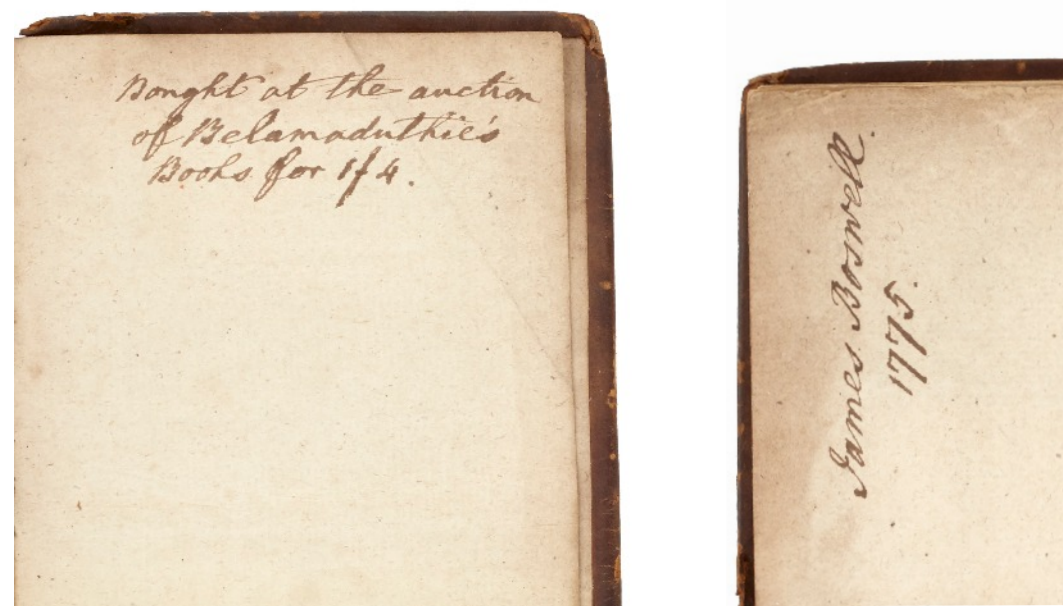 Bought at the auction
of Belamaduthie's
Books for 1f4.
James Boswell.
1775.